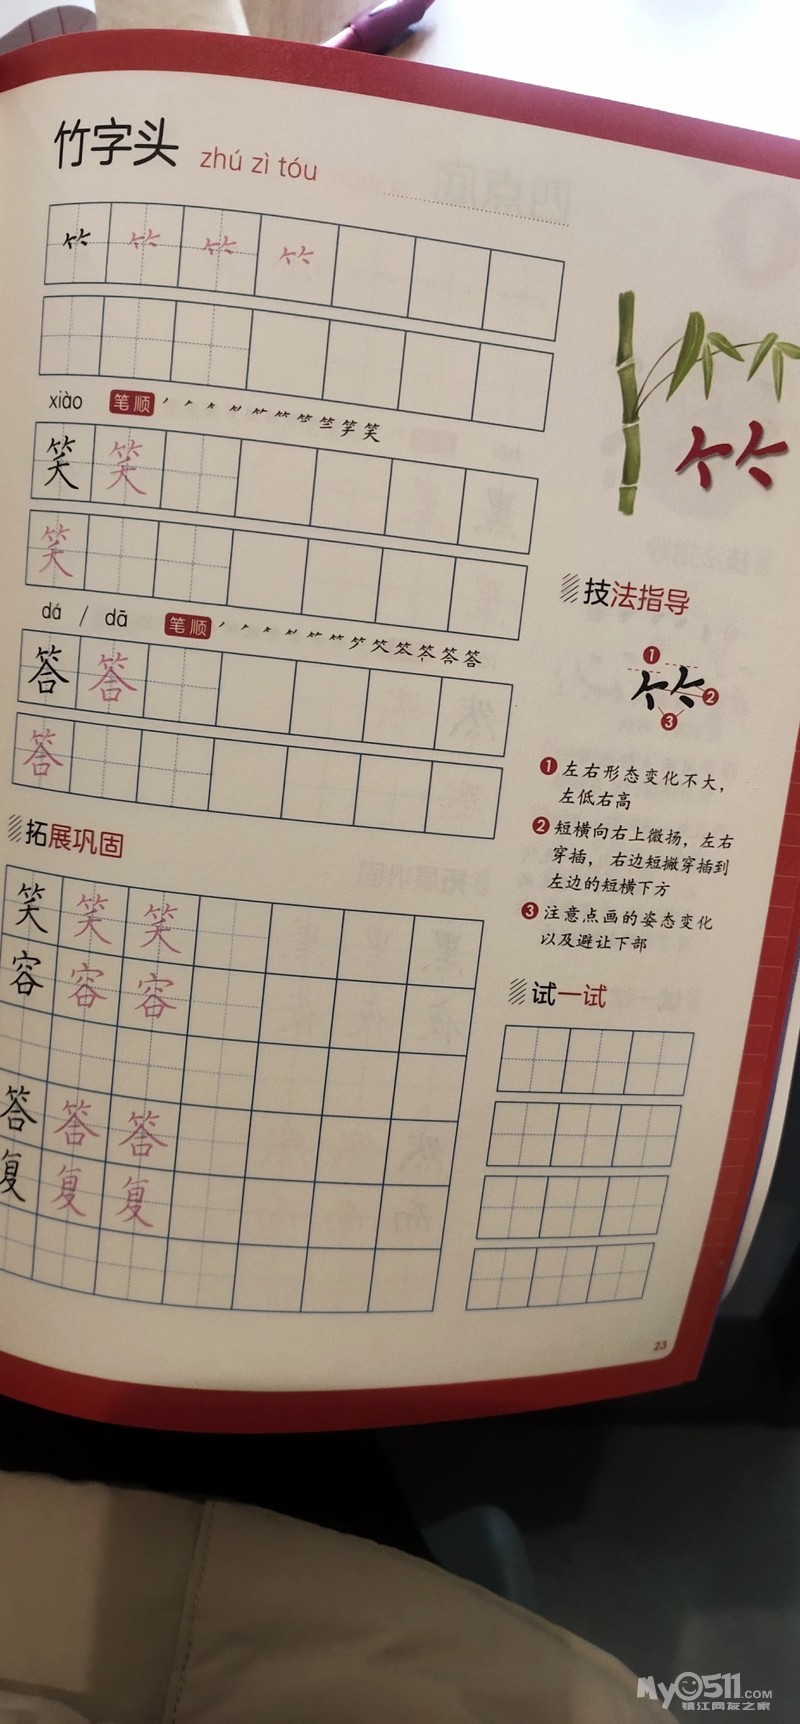 竹字头 zhú zì tóu
𥫗 𥫗 𥫗 𥫗
xiào 笔顺
笑 笑
笑
dá / dā 笔顺
答 答
答
拓展巩固
笑 笑 笑
容 容 容
答 答 答
复 复 复
𥫗
技法指导
1
𥫗
2
3
1 左右形态变化不大，
左低右高
2 短横向右上微扬，左右
穿插，右边短撇穿插到
左边的短横下方
3 注意点画的姿态变化
以及避让下部
试一试
23
My0511.com
镇江网友之家